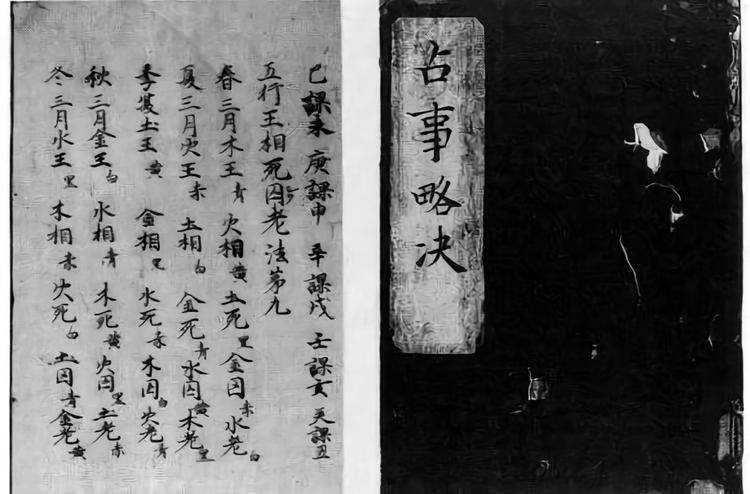 占事略决
己課未 庚課申 辛課戌 壬課亥 癸課丑
五行王相死囚老法第九
春三月木王青 火相黄 土死黒 金囚赤 水老白
夏三月火王赤 土相白 金死青 水囚黄 木老黒
季夏土王黄 金相黒 水死赤 木囚白 火老青
秋三月金王白 水相青 木死黄 火囚黒 土老赤
冬三月水王黒 木相赤 火死白 土囚青 金老黄